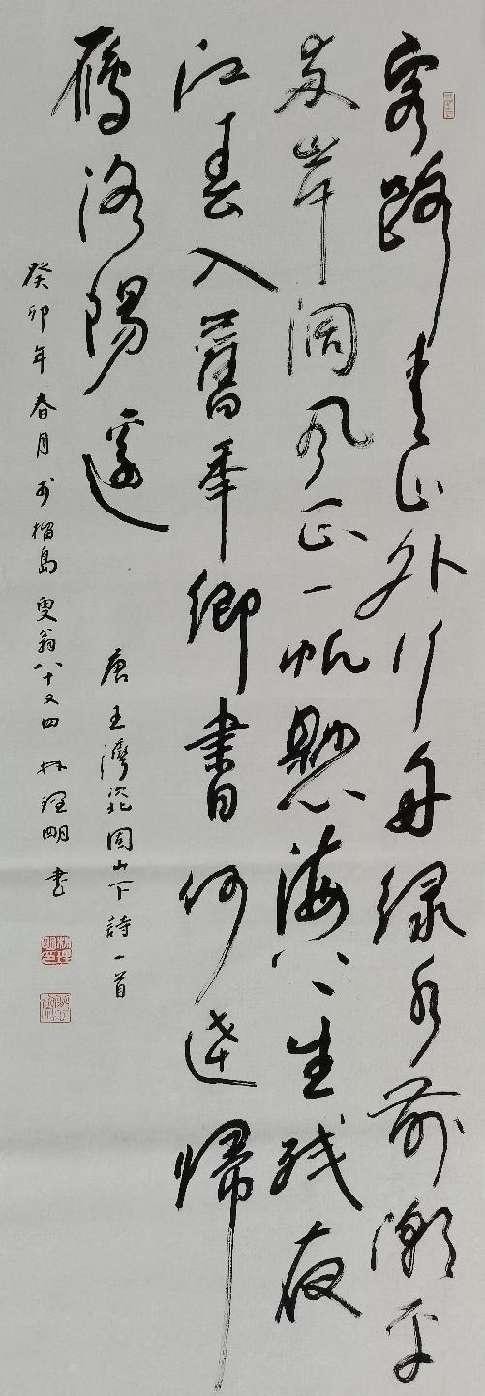 客路青山外行舟绿水前潮平
两岸阔风正一帆懸海日生残夜
江春入舊年鄉書何达歸
雁洛陽邊
唐王灣次北固山下詩一首
癸卯年春月于榴島叟翁八十又四林理明书